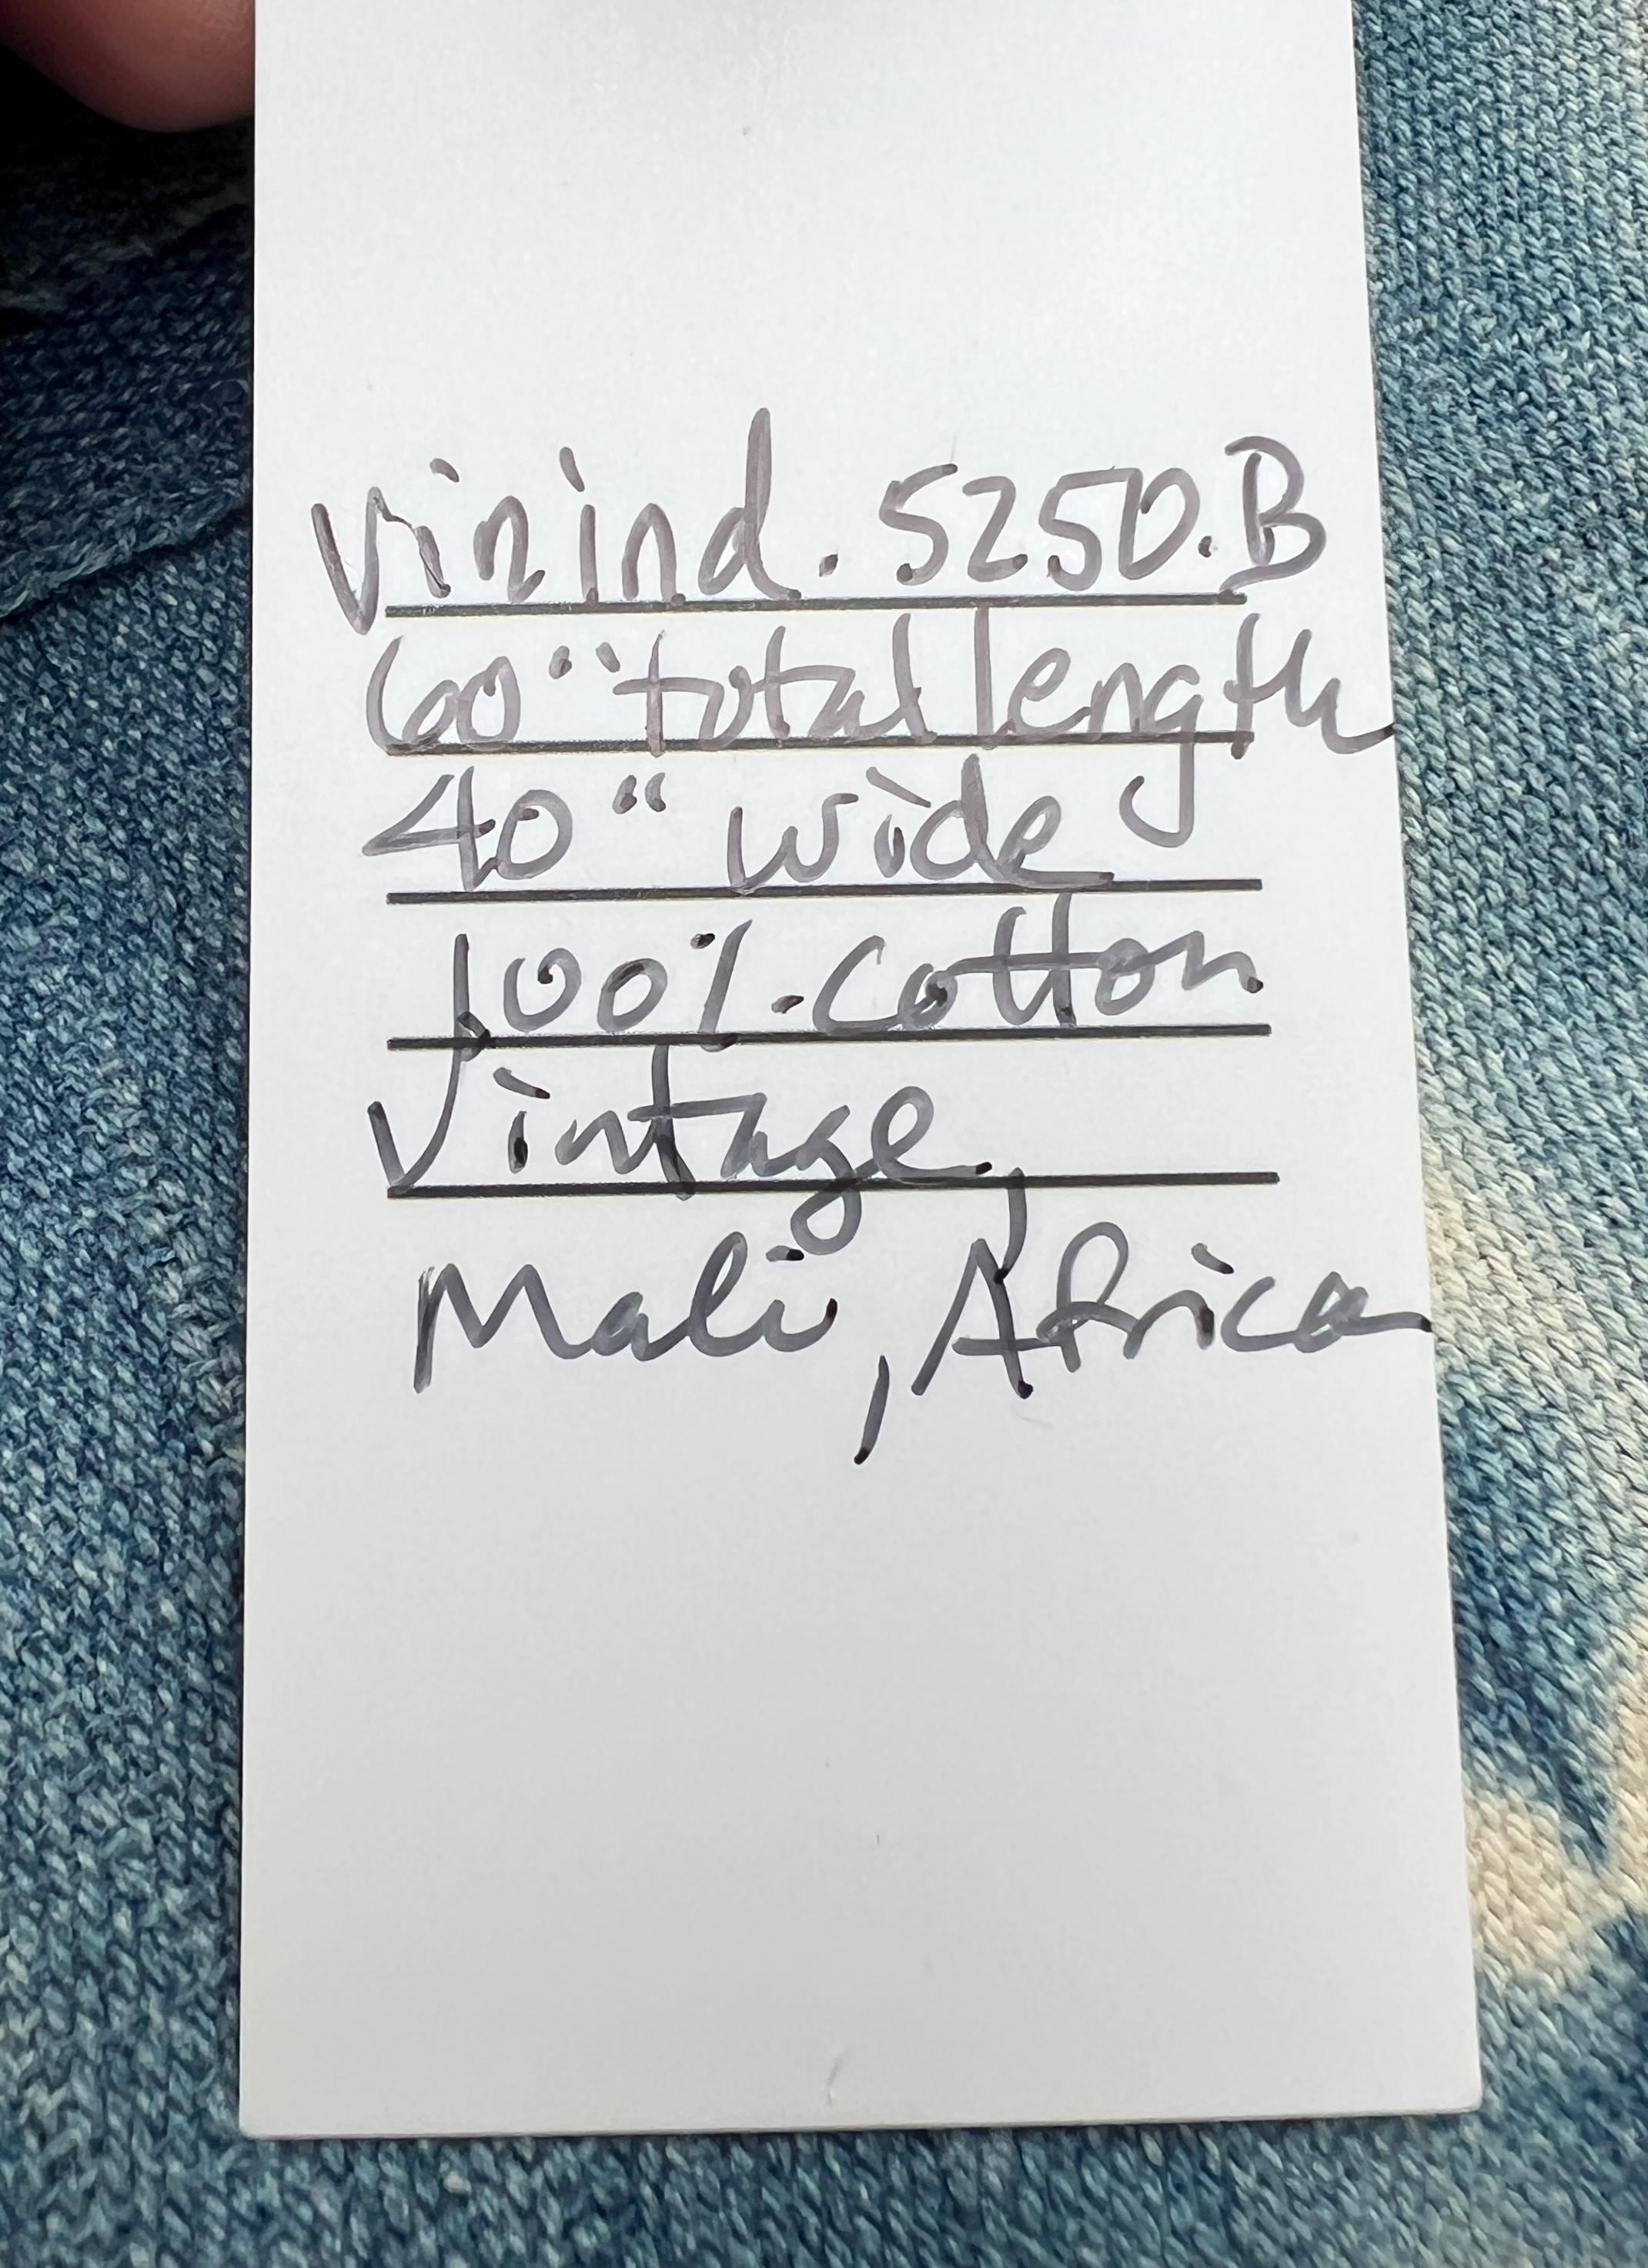 vinind. 5250.B
60" total length
40" wide
100% cotton
Vintage
Mali, Africa